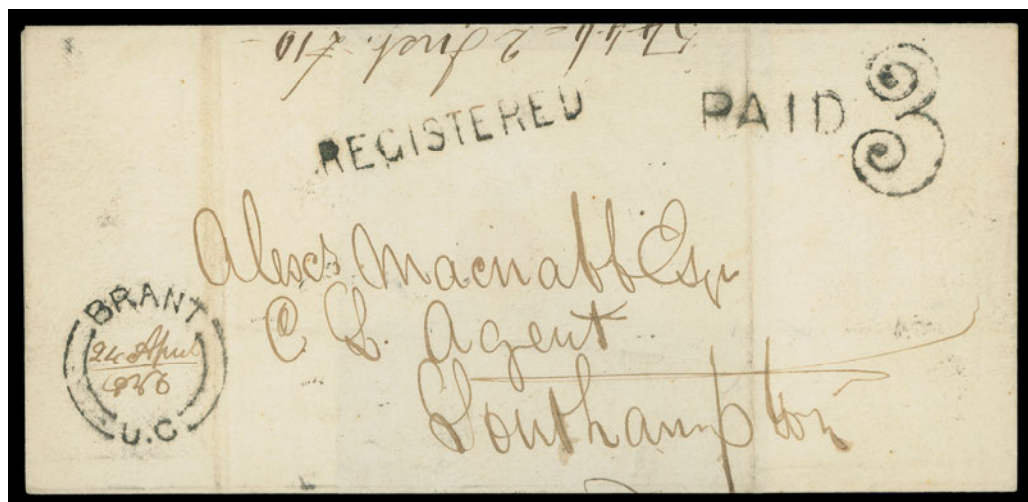 REGISTERED
PAID 3
Alexr Macnabb Esqr
C. L. Agent
Southampton
BRANT
24 April
1856
U.C